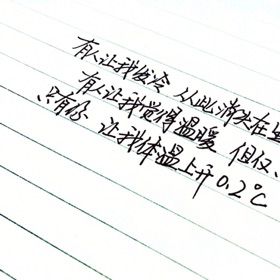 有人让我发冷 从此消失在
有人让我觉得温暖 但仅
只有你 让我体温上升0.2℃